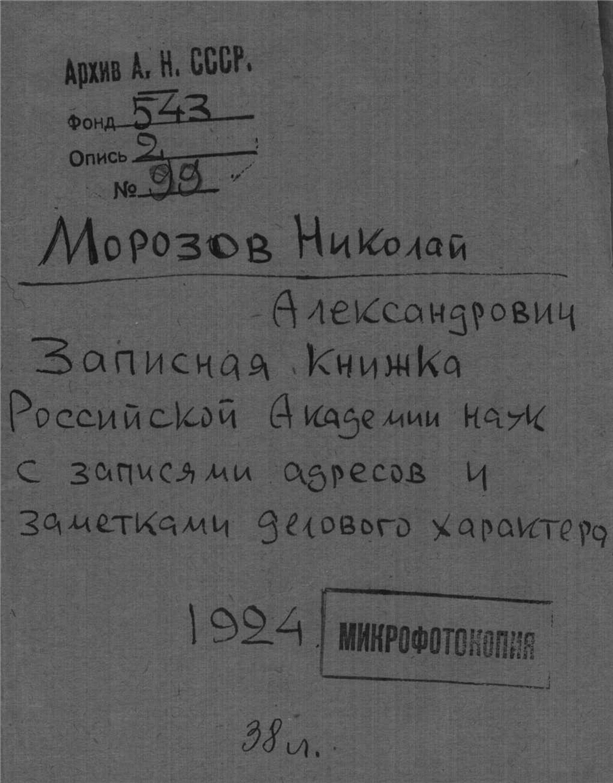 Архив А. Н. СССР.
Фонд 543
Опись 2
№ 99
Морозов Николай
Александрович
Записная книжка
Российской Академии наук
с записями адресов и
заметками делового характера
1924
МИКРОФОТОКОПИЯ
38 л.